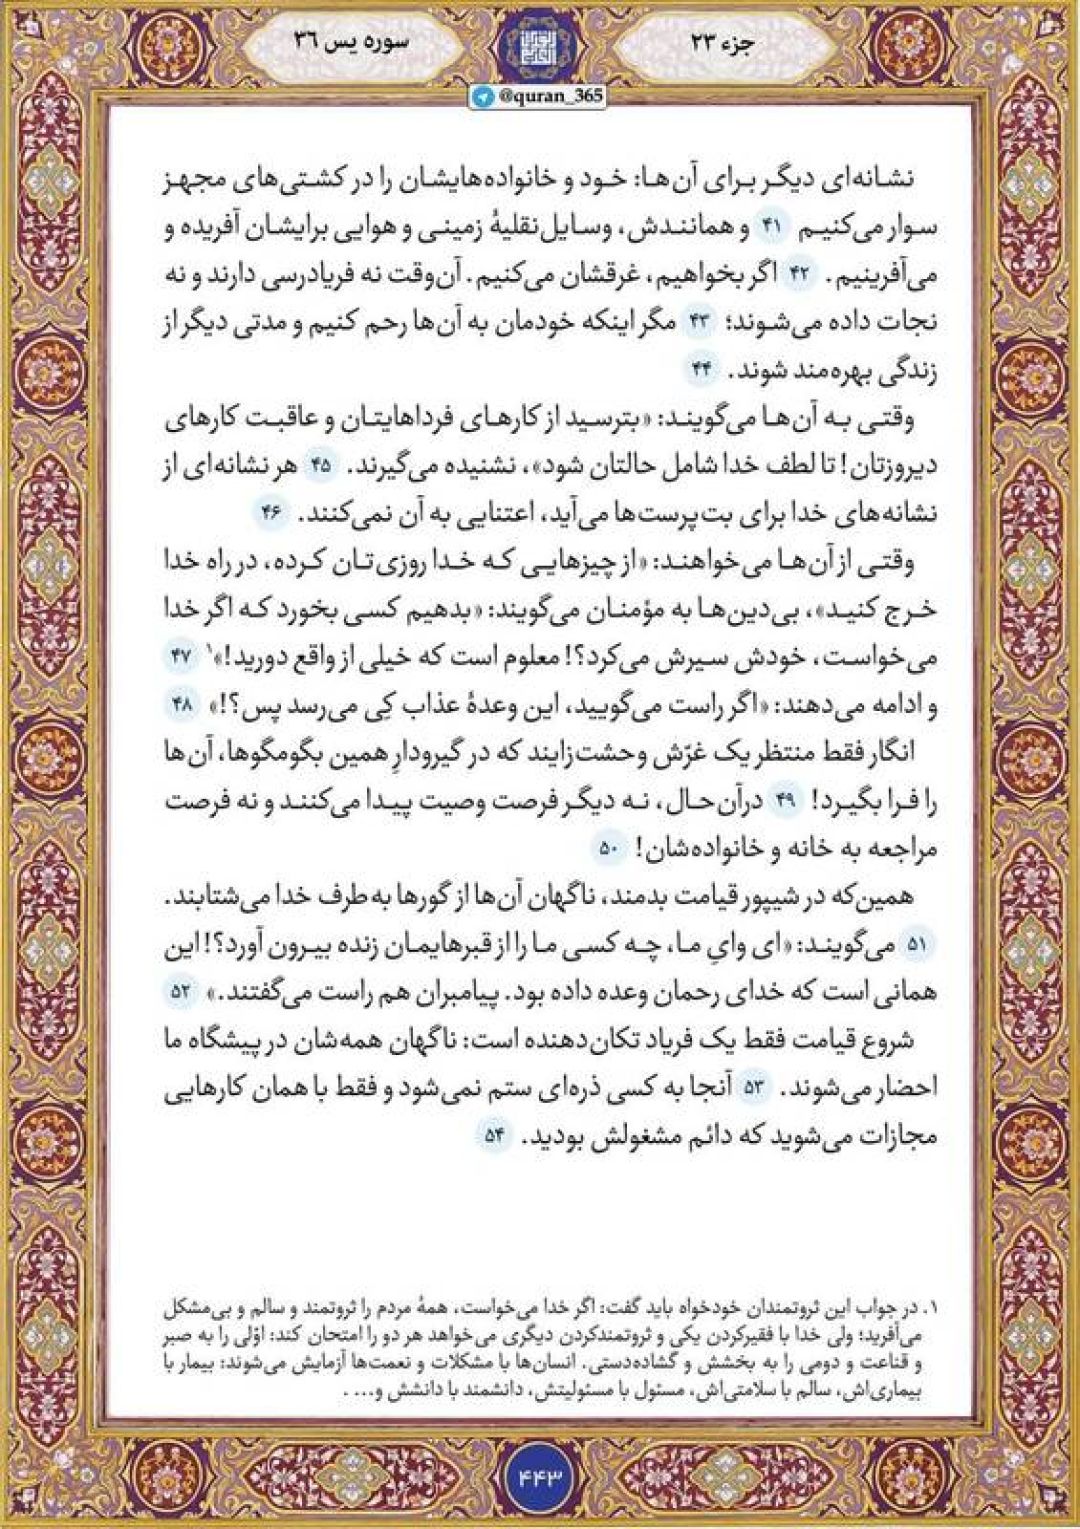 جزء ۲۳
سوره یس ۳۶
@quran_365
نشانه‌ای دیگر برای آن‌ها: خود و خانواده‌هایشان را در کشتی‌های مجهز
سوار می‌کنیم ۴۱ و همانندش، وسایل‌نقلیهٔ زمینی و هوایی برایشان آفریده و
می‌آفرینیم. ۴۲ اگر بخواهیم، غرقشان می‌کنیم. آن‌وقت نه فریادرسی دارند و نه
نجات داده می‌شوند؛ ۴۳ مگر اینکه خودمان به آن‌ها رحم کنیم و مدتی دیگر از
زندگی بهره‌مند شوند. ۴۴
وقتی به آن‌ها می‌گویند: «بترسید از کارهای فرداهایتان و عاقبت کارهای
دیروزتان! تا لطف خدا شامل حالتان شود»، نشنیده می‌گیرند. ۴۵ هر نشانه‌ای از
نشانه‌های خدا برای بت‌پرست‌ها می‌آید، اعتنایی به آن نمی‌کنند. ۴۶
وقتی از آن‌ها می‌خواهند: «از چیزهایی که خدا روزی‌تان کرده، در راه خدا
خرج کنید»، بی‌دین‌ها به مؤمنان می‌گویند: «بدهیم کسی بخورد که اگر خدا
می‌خواست، خودش سیرش می‌کرد؟! معلوم است که خیلی از واقع دورید!»۱ ۴۷
و ادامه می‌دهند: «اگر راست می‌گویید، این وعدهٔ عذاب کِی می‌رسد پس؟!» ۴۸
انگار فقط منتظر یک غرّش وحشت‌زایند که در گیرودارِ همین بگومگوها، آن‌ها
را فرا بگیرد! ۴۹ درآن‌حال، نه دیگر فرصت وصیت پیدا می‌کنند و نه فرصت
مراجعه به خانه و خانواده‌شان! ۵۰
همین‌که در شیپور قیامت بدمند، ناگهان آن‌ها از گورها به‌طرف خدا می‌شتابند.
۵۱ می‌گویند: «ای وایِ ما، چه کسی ما را از قبرهایمان زنده بیرون آورد؟! این
همانی است که خدای رحمان وعده داده بود. پیامبران هم راست می‌گفتند.» ۵۲
شروع قیامت فقط یک فریاد تکان‌دهنده است: ناگهان همه‌شان در پیشگاه ما
احضار می‌شوند. ۵۳ آنجا به کسی ذره‌ای ستم نمی‌شود و فقط با همان کارهایی
مجازات می‌شوید که دائم مشغولش بودید. ۵۴
۱. در جواب این ثروتمندان خودخواه باید گفت: اگر خدا می‌خواست، همهٔ مردم را ثروتمند و سالم و بی‌مشکل
می‌آفرید؛ ولی خدا با فقیرکردن یکی و ثروتمندکردن دیگری می‌خواهد هر دو را امتحان کند: اوّلی را به صبر
و قناعت و دومی را به بخشش و گشاده‌دستی. انسان‌ها با مشکلات و نعمت‌ها آزمایش می‌شوند: بیمار با
بیماری‌اش، سالم با سلامتی‌اش، مسئول با مسئولیتش، دانشمند با دانشش و... .
۴۴۳